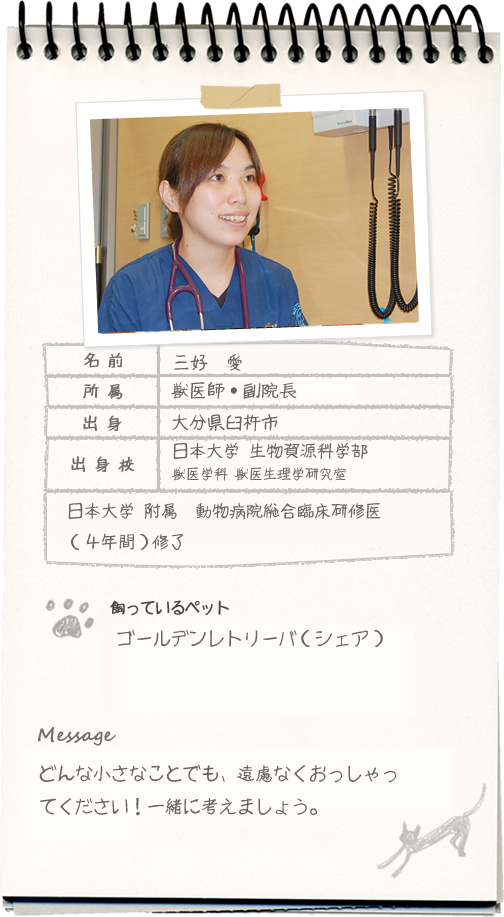 名前 三好 愛
所属 獣医師・副院長
出身 大分県臼杵市
出身校 日本大学 生物資源科学部
獣医学科 獣医生理学研究室
日本大学 附属 動物病院総合臨床研修医
(4年間)修了
飼っているペット
ゴールデンレトリーバ(シェア)
Message
どんな小さなことでも、遠慮なくおっしゃっ
てください!一緒に考えましょう。